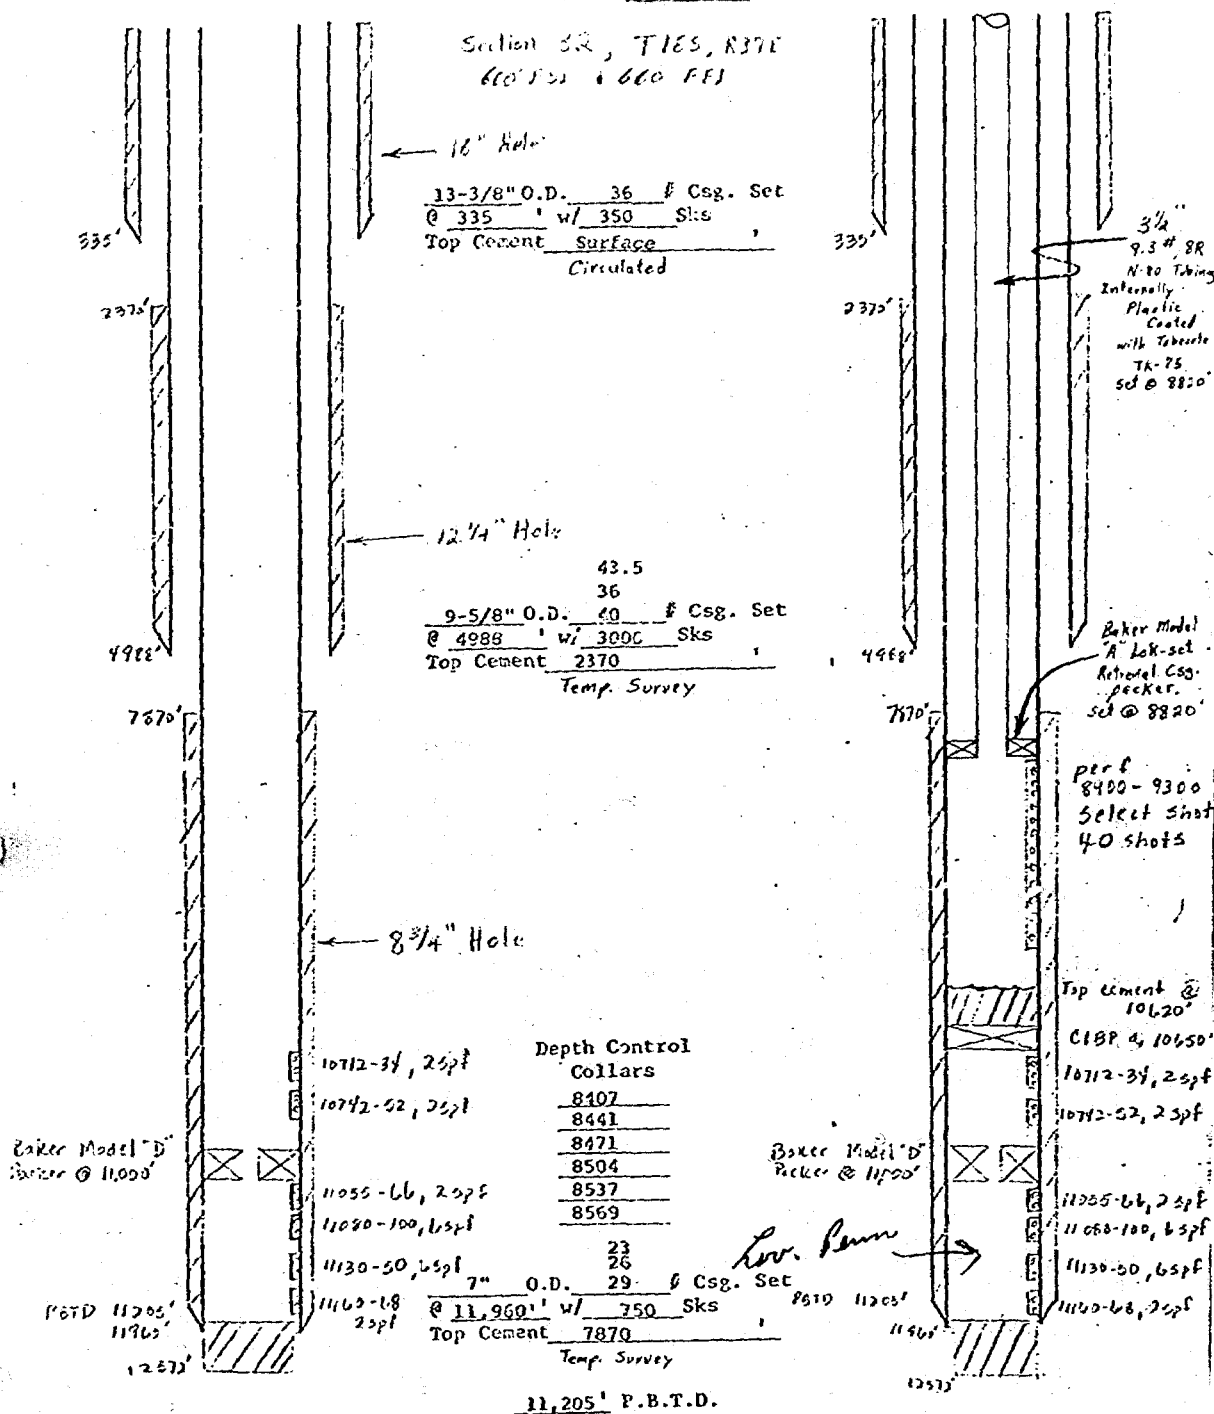 Section 32, T16S, R37E
660' FSL & 660 FEL
18" Hole
13-3/8" O.D. 36 # Csg. Set
@ 335 ' w/ 350 Sks
Top Cement Surface '
Circulated
335'
2370'
12 1/4" Hole
43.5
36
9-5/8" O.D. 40 # Csg. Set
@ 4988 ' w/ 3000 Sks
Top Cement 2370 '
Temp. Survey
4988'
7870'
8 3/4" Hole
10712-34, 2spf
10742-52, 2spf
Baker Model "D"
Packer @ 11,000'
11055-66, 2spf
11080-100, 6spf
11130-50, 6spf
11160-68
2spf
PBTD 11205'
11960'
12572'
Depth Control
Collars
8407
8441
8471
8504
8537
8569
23
26
7" O.D. 29 # Csg. Set
@ 11,960' ' w/ 750 Sks
Top Cement 7870 '
Temp. Survey
11,205' P.B.T.D.
335'
2370'
3 1/2"
9.3 #, 8R
N-80 Tubing
Internally
Plastic
Coated
with Tubecote
TK-75
set @ 8820'
4988'
Baker Model
"A" Lok-set
Retrieval Csg.
packer.
set @ 8820'
7870'
perf
8900-9300
Select Shot
40 shots
Top cement @
10620'
CIBP @ 10650'
10712-34, 2spf
10742-52, 2spf
Baker Model "D"
Packer @ 11,000'
11055-66, 2spf
11080-100, 6spf
11130-50, 6spf
11160-68, 2spf
Low. Penn
PBTD 11205'
11960'
12572'